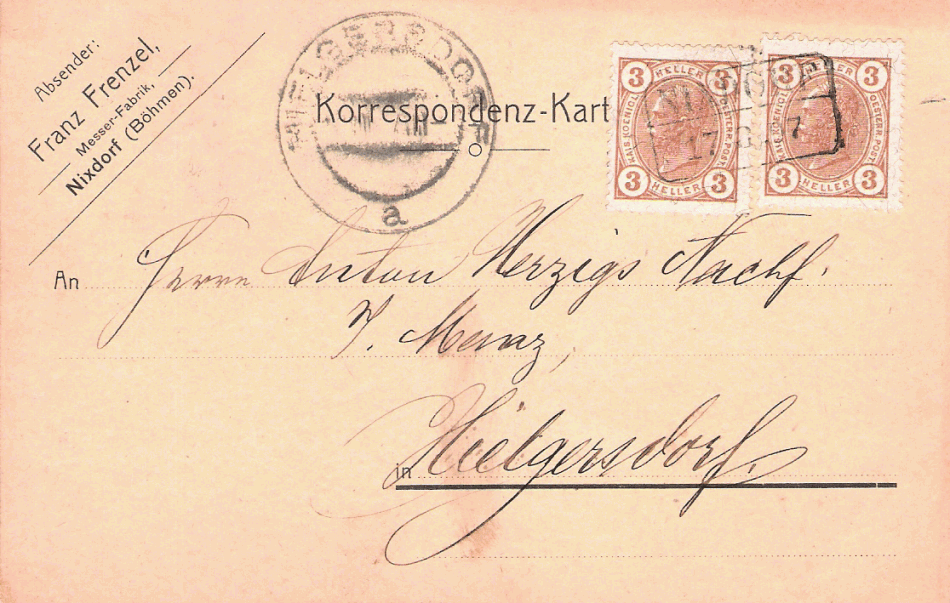 Absender:
Franz Frenzel,
Messer-Fabrik,
Nixdorf (Böhmen).
HIELGERSDORF
a
Korrespondenz-Kart
3 HELLER 3
KAIS. KOENIGL. OESTERR. POST.
3 HELLER 3
3 HELLER 3
KAIS. KOENIGL. OESTERR. POST.
3 HELLER 3
17 7
An Herrn Anton Herzigs Nachf.
in Hielgersdorf.